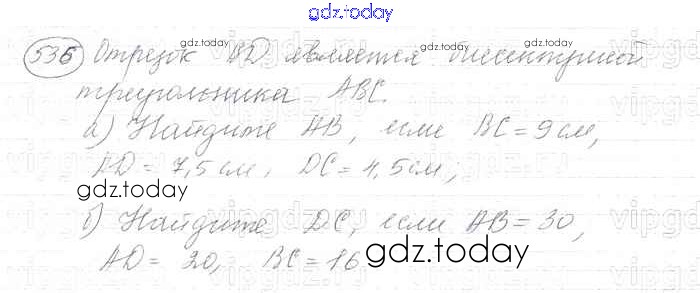 gdz.today
536 Отрезок BD является биссектрисой
gdz.today
треугольника ABC.
а) Найдите AB, если BC = 9 см,
AD = 7,5 см, DC = 4,5 см;
gdz.today
б) Найдите DC, если AB = 30,
AD = 20, BC = 16
gdz.today